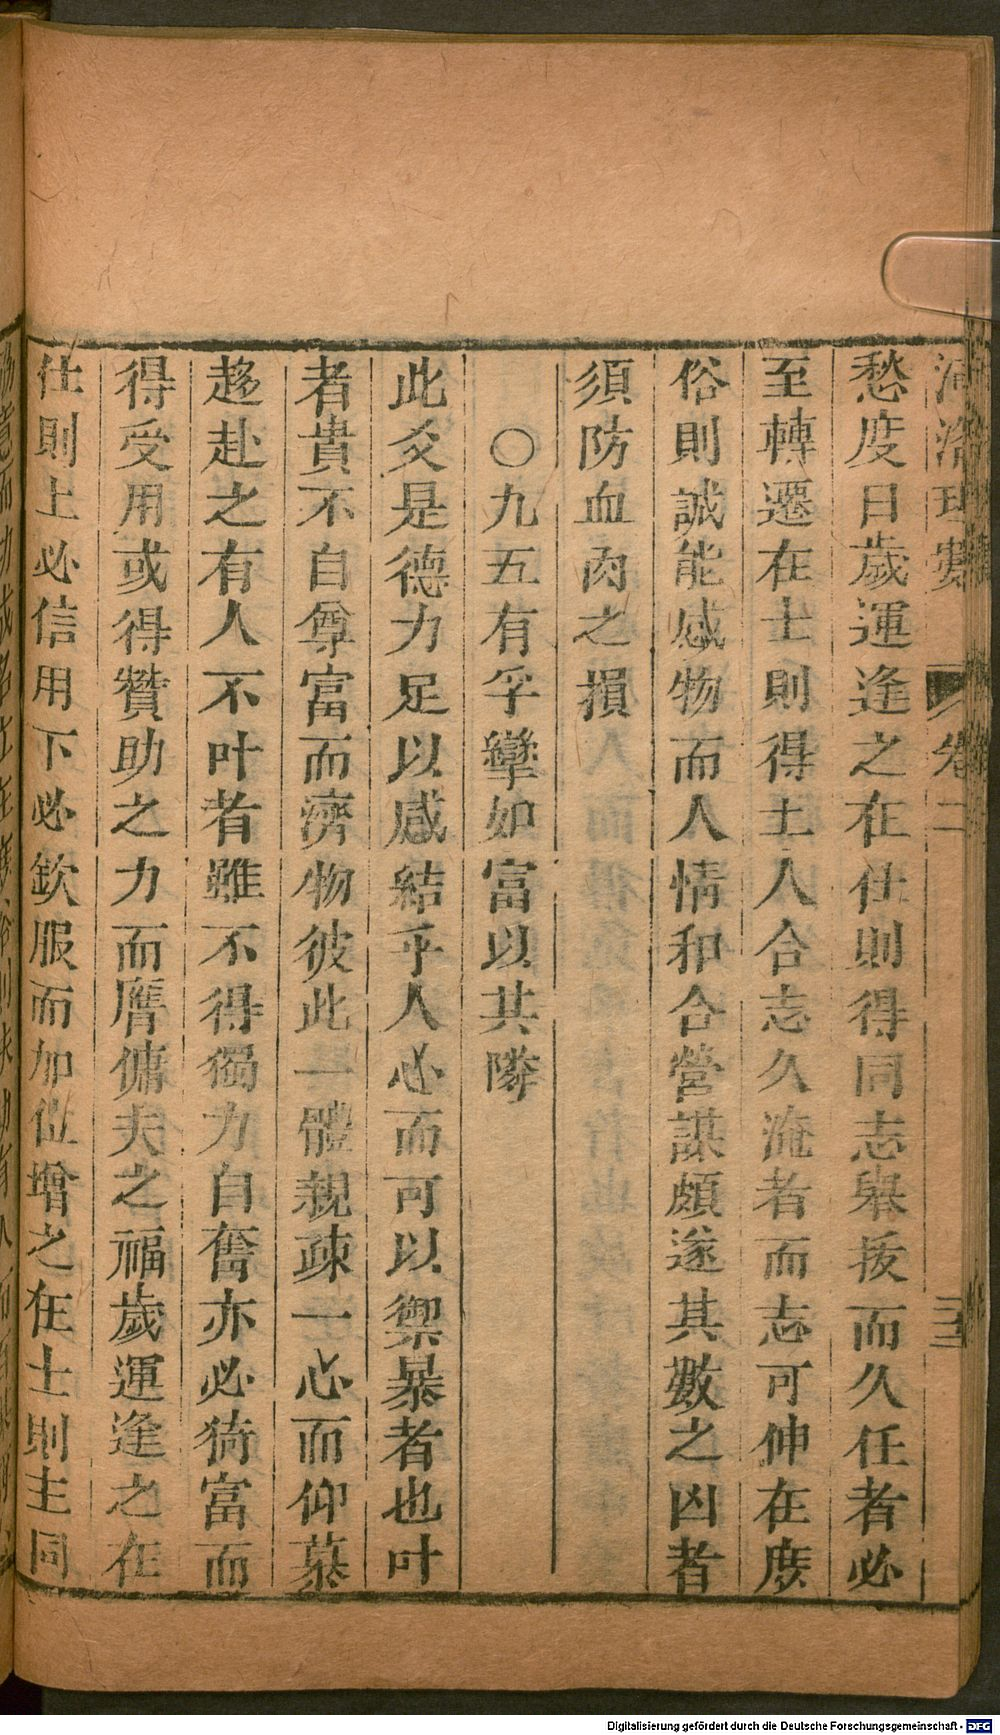 河洛理數 卷二
愁度日歲運逢之在仕則得同志舉拔而久任者必
至轉遷在士則得主人合志久淹者而志可伸在庻
俗則誠能感物而人情和合營謀頗遂其數之凶者
須防血肉之損
○九五有孚攣如富以其隣
此爻是德力足以感結乎人心而可以禦暴者也叶
者貴不自尊富而濟物彼此一體親疎一心而仰慕
趨赴之有人不叶者雖不得獨力自奮亦必猗富而
得受用或得贊助之力而膺傭夫之福歲運逢之在
仕則上必信用下必欽服而加位增之在士則主同
Digitalisierung gefördert durch die Deutsche Forschungsgemeinschaft - DFG